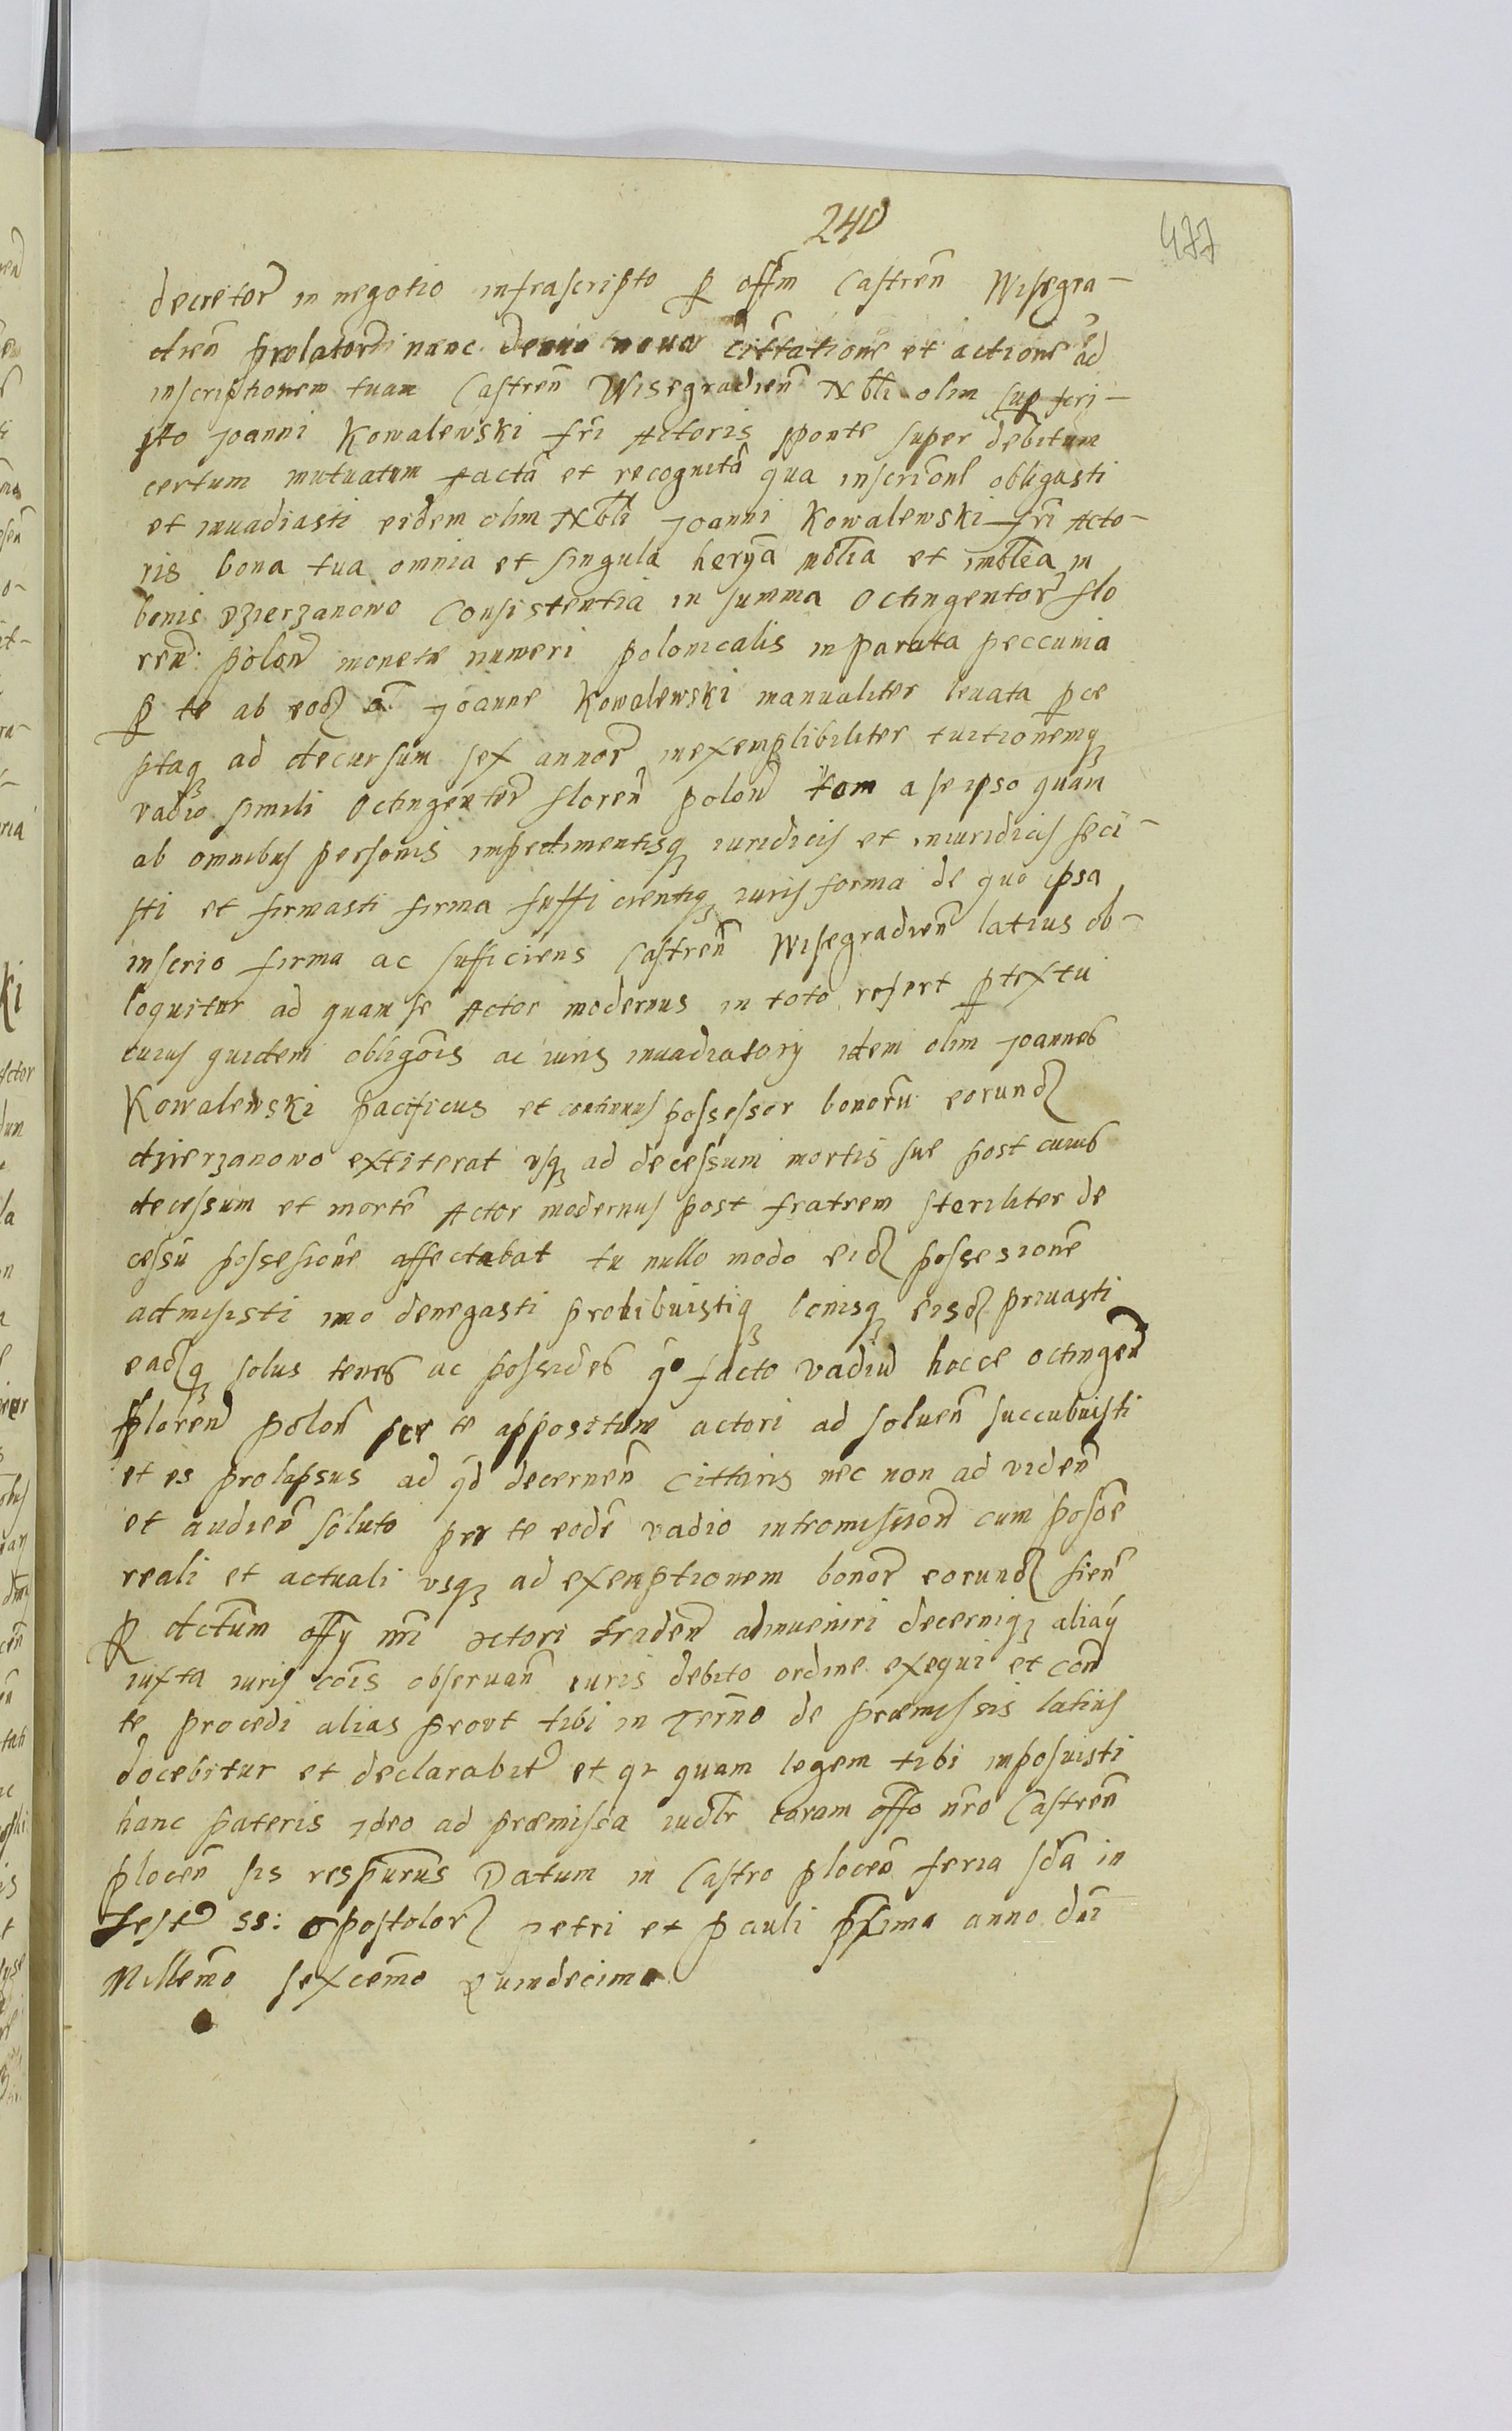 240
477
decretor in negotio infrascripto p offm Castren Wisegra-
dien prolatorũ nunc denuo noua cittatione et actione ad
inscriptionem tuam Castren Wisegradien Nbli olim supscri-
pto Joanni Kowalewski fri Actoris sponte super debitum
certum mutuatum factã et recognitã qua inscrione obligasti
et inuadiasti eidem olim Nbli Joanni Kowalewski fri Acto-
ris bona tua omnia et singula heryã mblia et imblia in
bonis Dzierzanowo Consistentia in summa Octingentor flo
ren: polon monetæ numeri polonicalis in parata peccunia
p te ab eodz Joanne Kowalewski manualiter leuata pce
ptaq ad decursum sex annor inexemplibiliter tuitionemq
vadio simili Octingentor floren polon tam a se ipso quam
ab omnibus personis impedimentisq iuridicis et iniuridicis feci-
sti et firmasti firma sufficientiq iuris forma de quo ipsa
inscrio firma ac sufficiens Castren Wisegradien latius ob-
loquitur ad quam se Actor modernus in toto refert ptextu
cuius quidem obligõis ac iuris inuadiatorij idem olim Joannes
Kowalewski pacificus et continuus possessor bonorũ eorundz
dzierzanowo extiterat usq ad decessum mortis suæ post cuius
decessum et mortẽ Actor modernus post fratrem steriliter de
cessũ possesionẽ affectabat tu nullo modo eidz possesionẽ
admisisti imo denegasti prohibuistiq bonisq eisdz priuasti
eadzq solus tenes ac possides qo facto vadiũ hocce octingen
floren polon per te appositum actori ad soluen succubuisti
et es prolapsus ad qd decernen cittaris nec non ad viden
et audien soluto per te eodẽ vadio intromission cum possõe
reali et actuali usq ad exemptionem bonor eorundz fien
p actum offy nri actori traden adinueniri decerniq aliay
iuxta iuris cõis obseruan iuris debito ordine exequi et con
te procedi alias prout tibi in Termno de præmissis latius
docebitur et declarabitr et qr quam legem tibi imposuisti
hanc pateris ideo ad præmissa iudlr coram offo nro Castren
plocen sis respurus Datum in Castro plocen feria scda in
festo SS: Apostolorz petri et pauli pxima anno dni
Millemo sexcemo Quindecimo